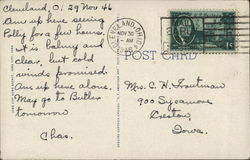 Cleveland, O. 29 Nov 46
Am up here seeing
Polly for a few hours.
It is balmy and
clear, but cold
winds promised.
Am up here alone.
May go to Butler
tomorrow
Chas.
CLEVELAND, OHIO
NOV 30
1946
POST CARD
1¢
Mrs. C. H. Troutman
900 Sycamore
Creston,
Iowa.